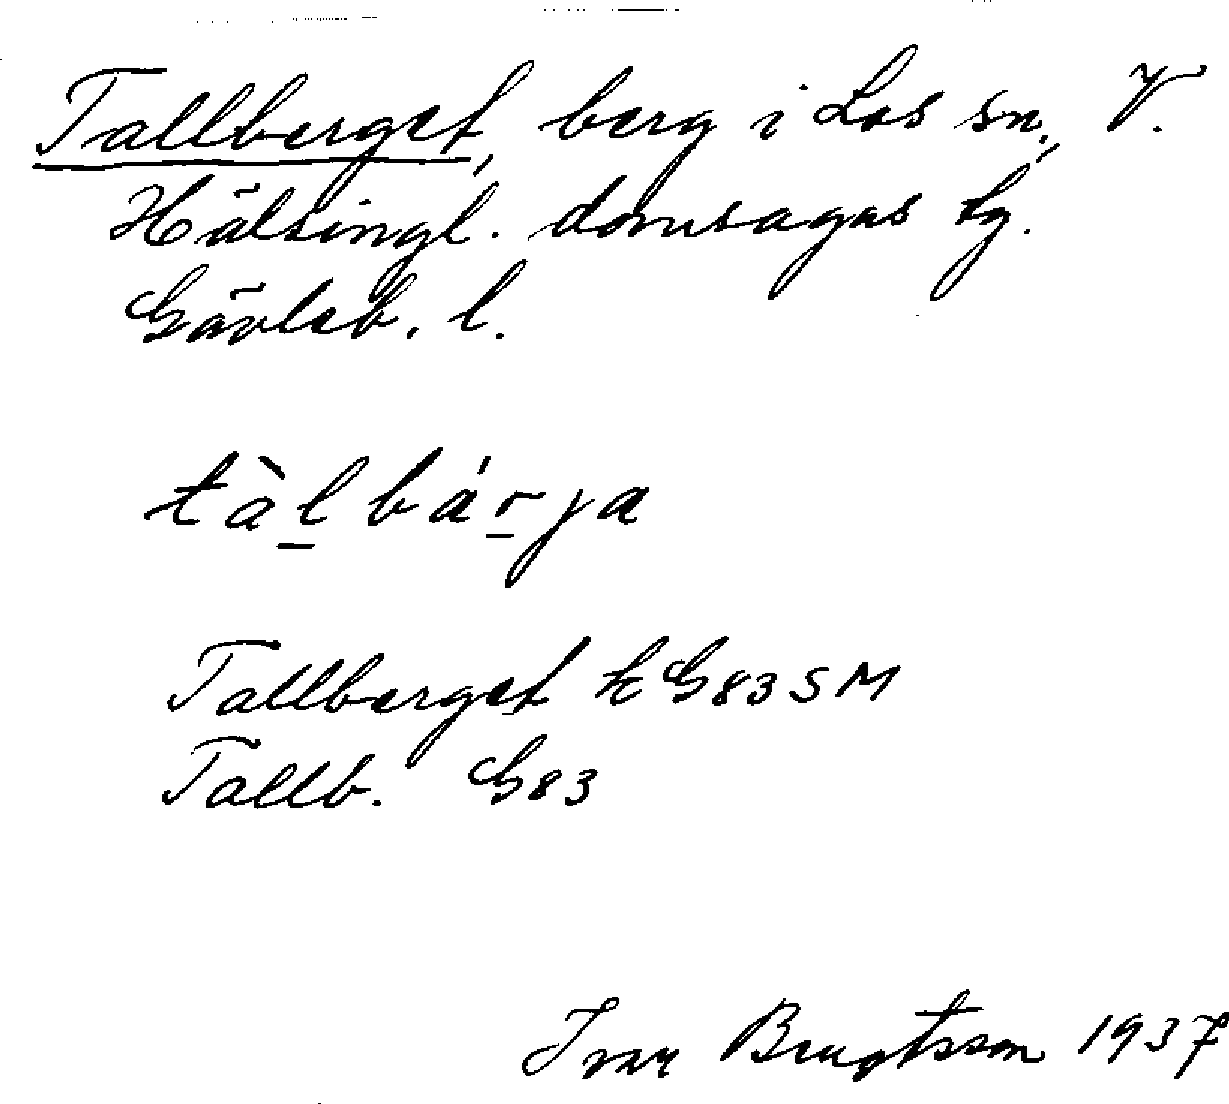 Tallberget, berg i Los sn, V.
Hälsingl. domsagas tg.
Gävleb. l.
tàl bárja
Tallberget k G83SM
Tallb. G83
Bengtsson 1937